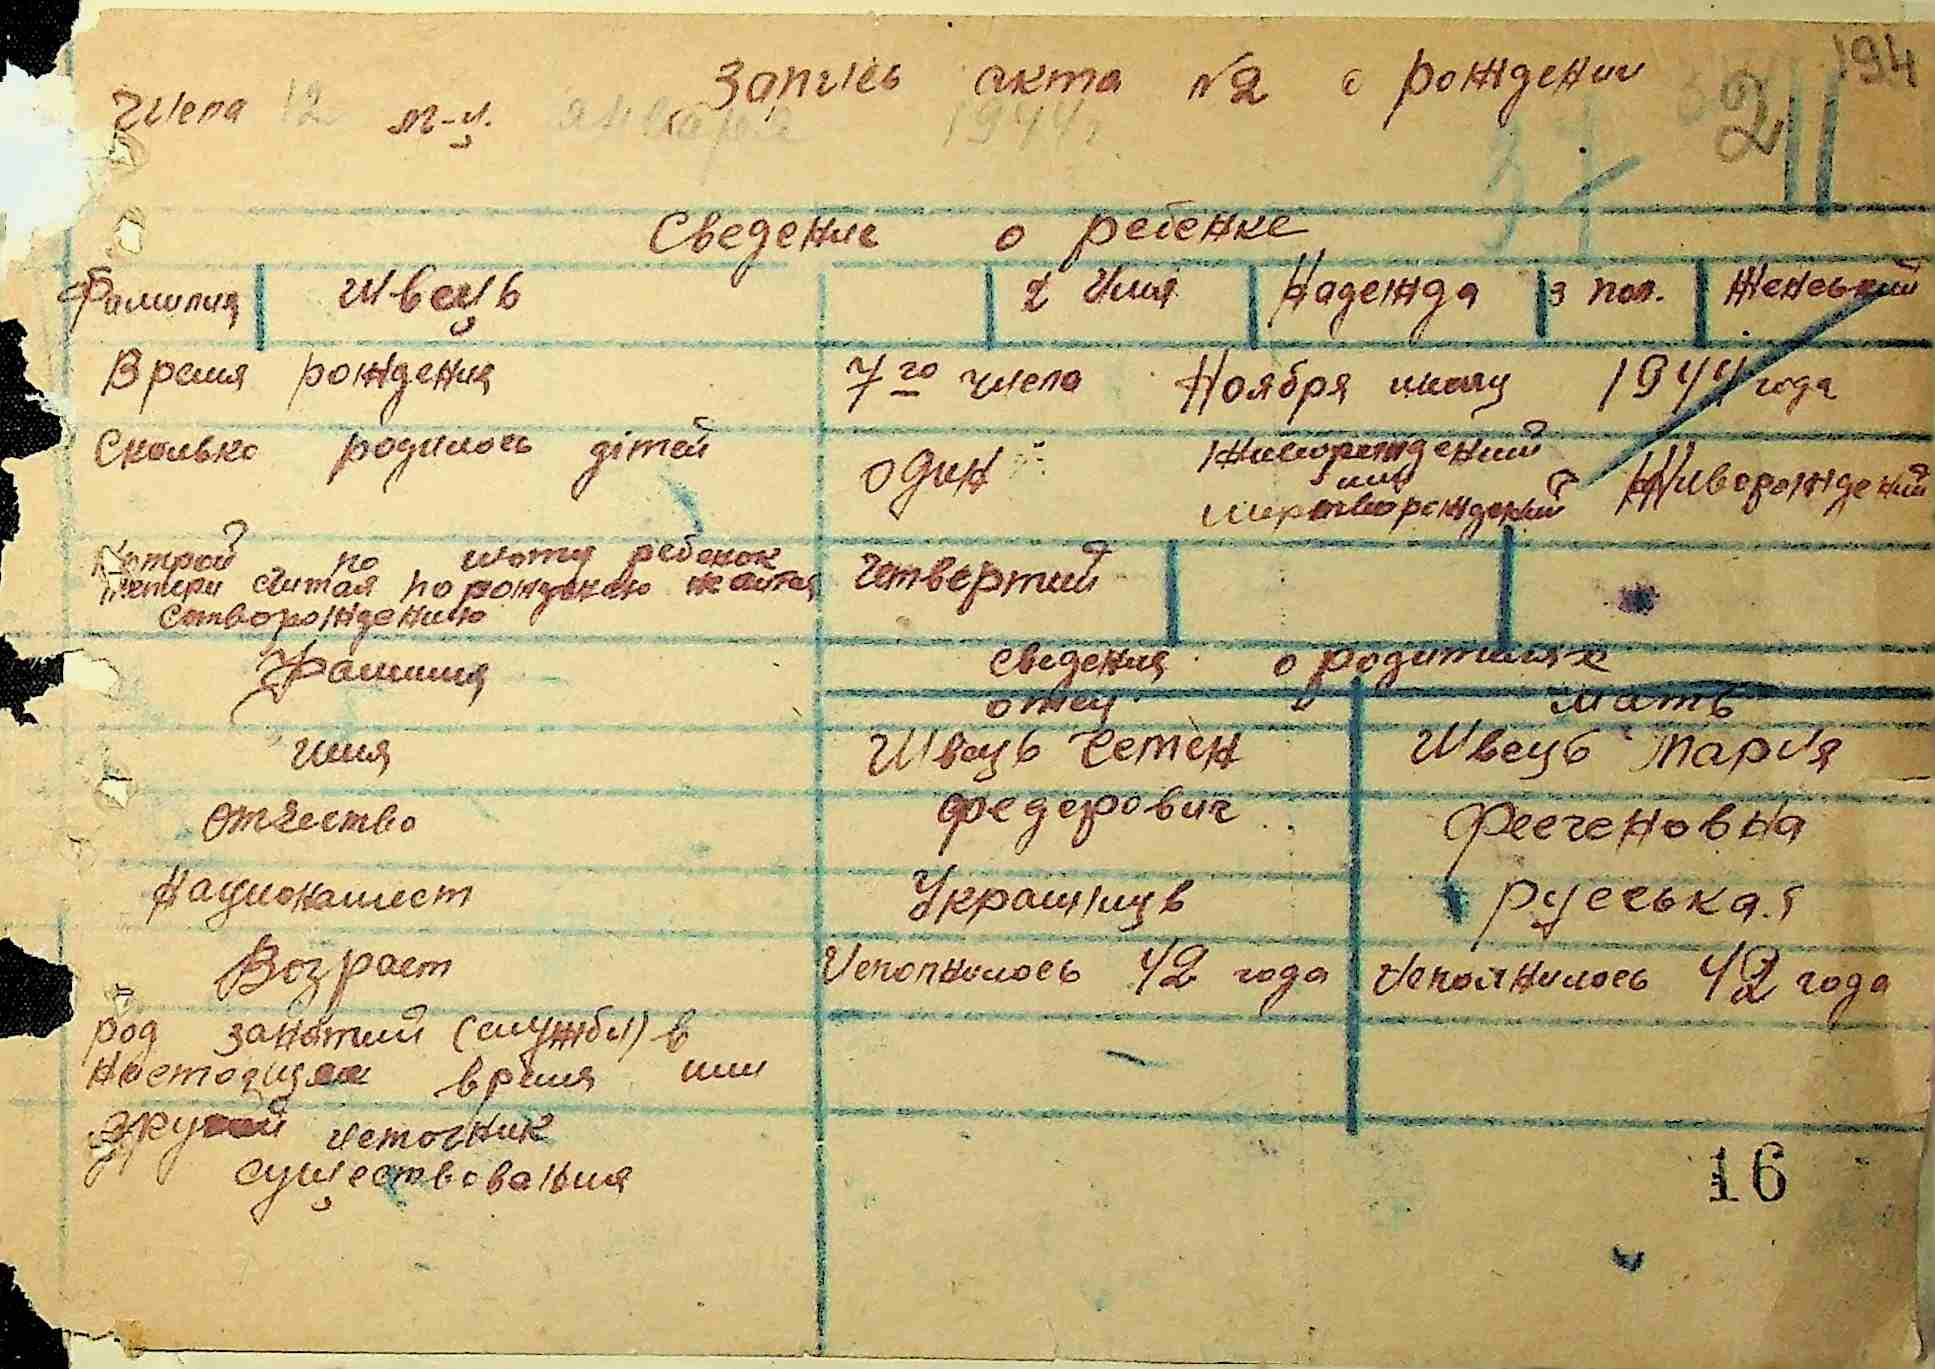 194
Запись акта №2 о рождении
Числа 12 м-ц. января 1944 г
211
37
Сведение о ребенке
Фамилия Швець 2 Имя Надежда 3 пол. Женський
Время рождения 7го числа Ноября 1944 года
Сколько родилось дітей один Живорождений или мертворождений Живорождений
по щоту ребенок Четвертий
матери считая по рождению
створождению
Фамилия сведения о родителях
отец мать
имя Швець Семен Швець Мария
отчество Федерович
Националност Украинцв Руська.я
Возраст Исполнилось 42 года Исполнилось 42 года
род занятий (службы) в
настоящее время или
другой источник
существования
16